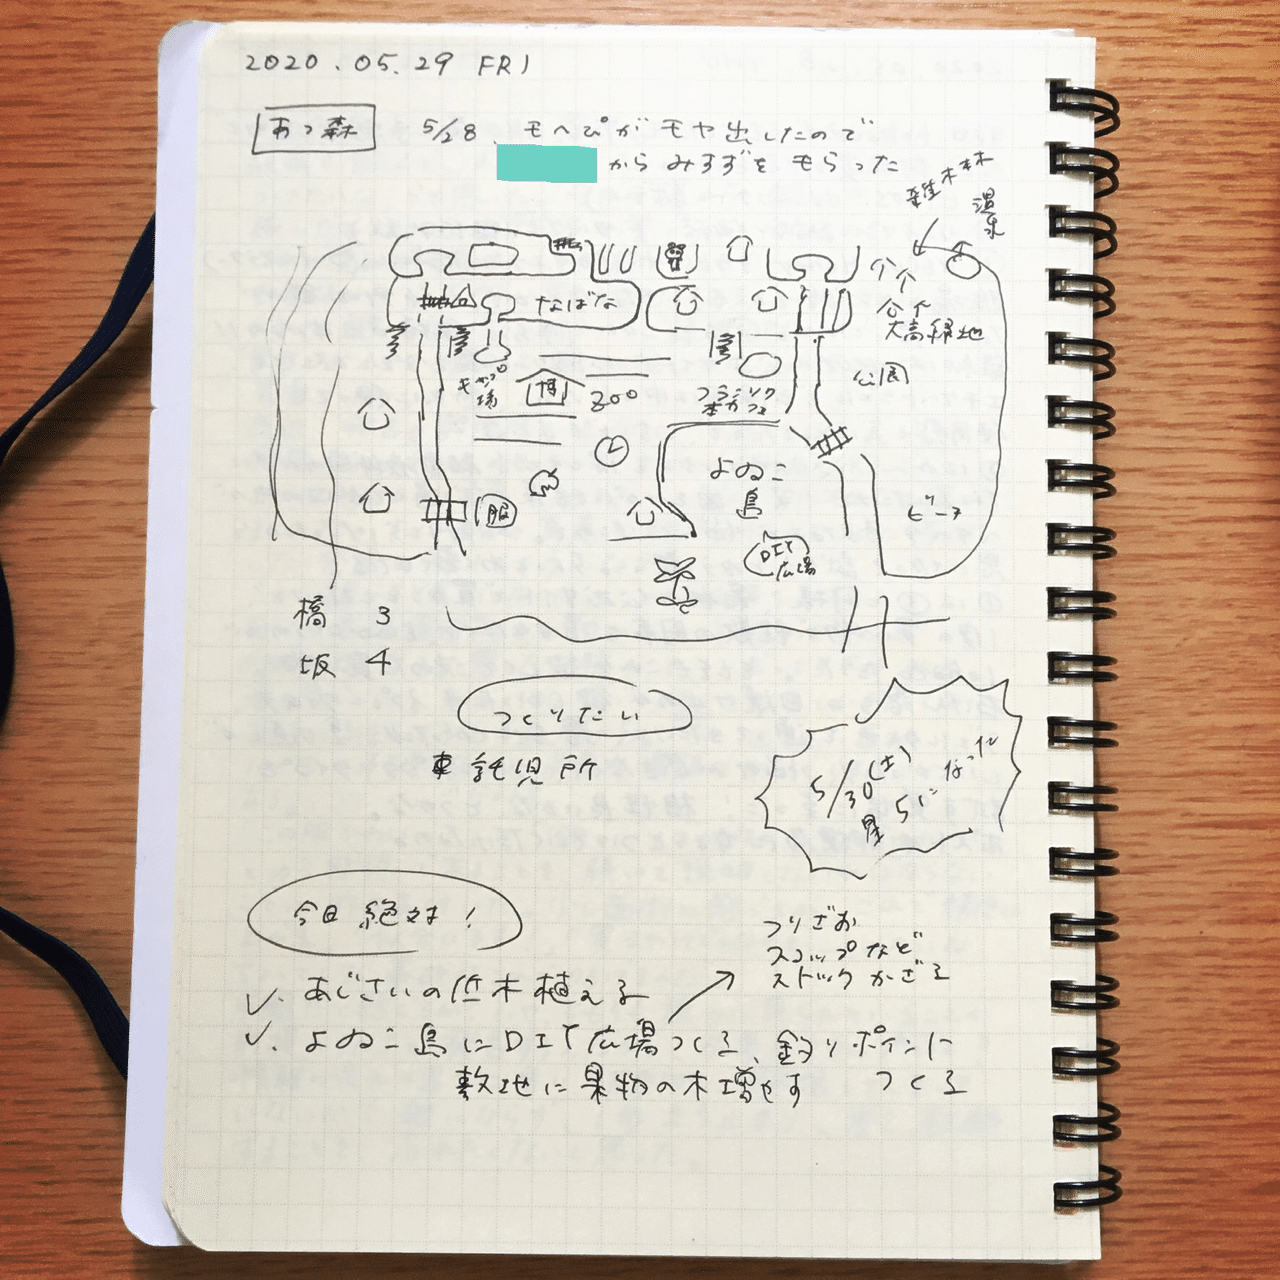 2020.05.29 FRI
あつ森
5/28、モヘぴがモヤ出したので
からみすずをもらった
雑木林
温泉
なばな
大高緑地
キャンプ場
博
Zoo
公園
よゐこ
島
服
ビーチ
DIY
広場
橋 3
坂 4
つくりたい
託児所
5/30(土)
星5になった
今日絶対!
つりざお
スコップなど
ストックかざる
✓. あじさいの低木植える
✓. よゐこ島にDIY広場つくる、釣りポイントに
敷地に果物の木増やす つくる